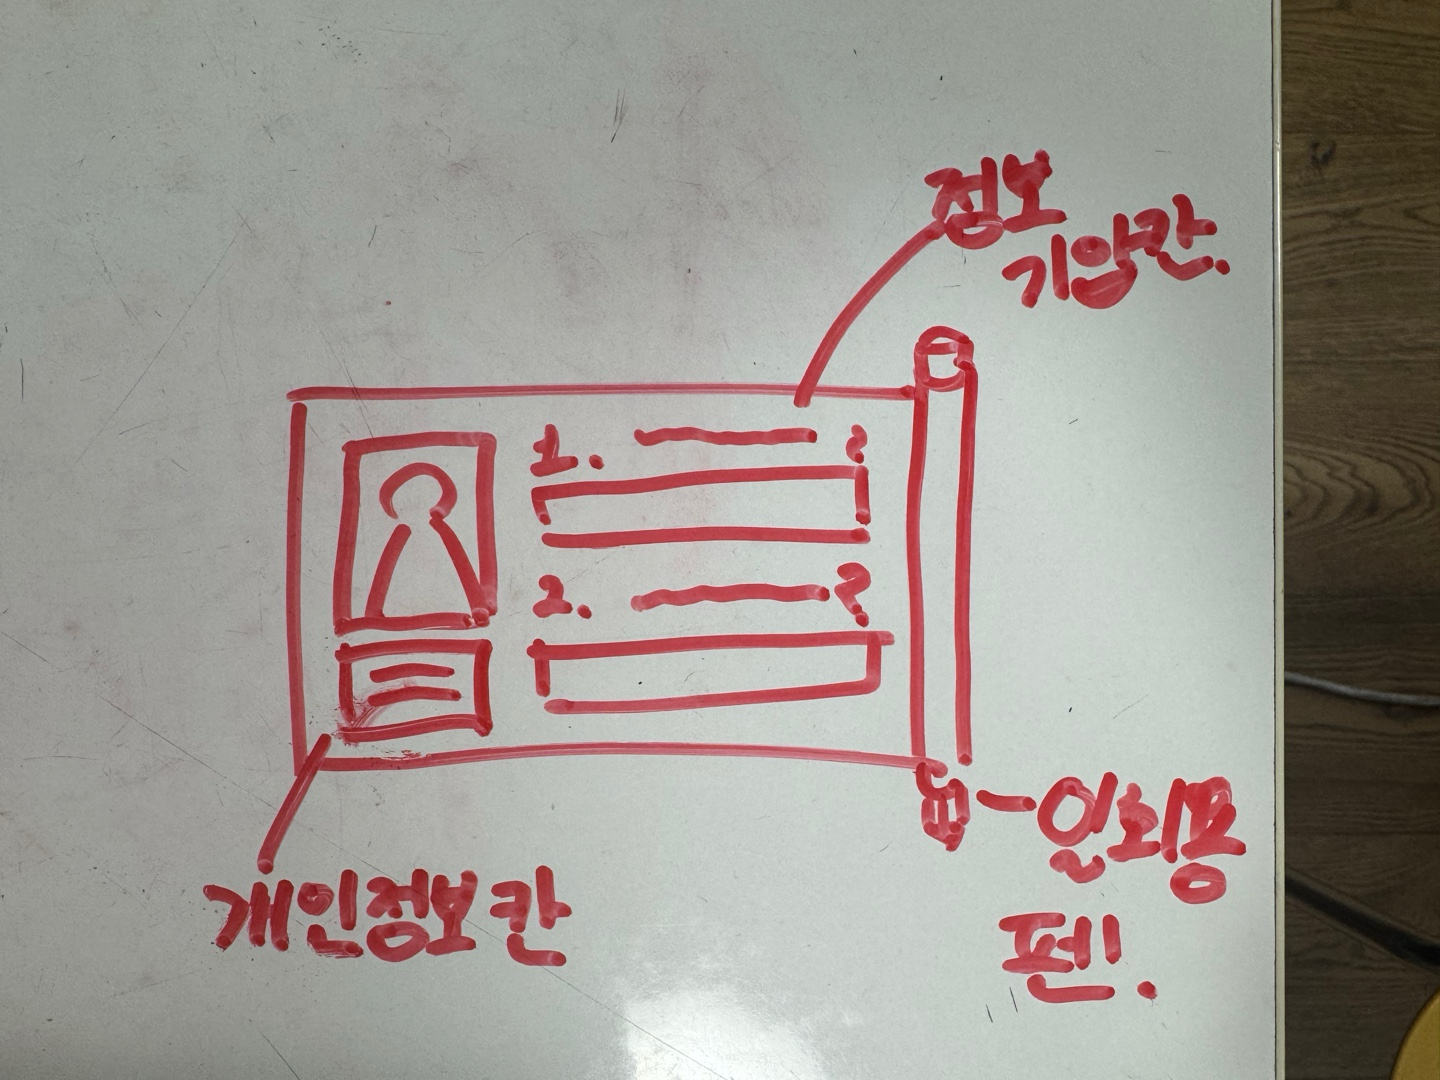 정보
기입칸.
1. ?
2. ?
일회용
펜!.
개인정보 칸